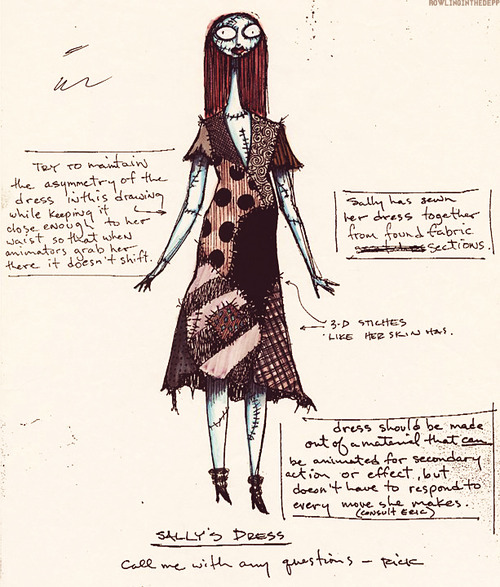 ROWLINGINTHEDEPP
Try to maintain
the asymmetry of the
dress in this drawing
while keeping it
close enough to her
waist, so that when
animators grab her
there it doesn't shift.
Sally has sewn
her dress together
from found fabric
sections.
3-D STICHES
LIKE HER SKIN HAS.
dress should be made
out of a material that can
be animated for secondary
action or effect, but
doesn't have to respond to
every move she makes.
(consult Eric)
SALLY'S DRESS
Call me with any questions – Rick